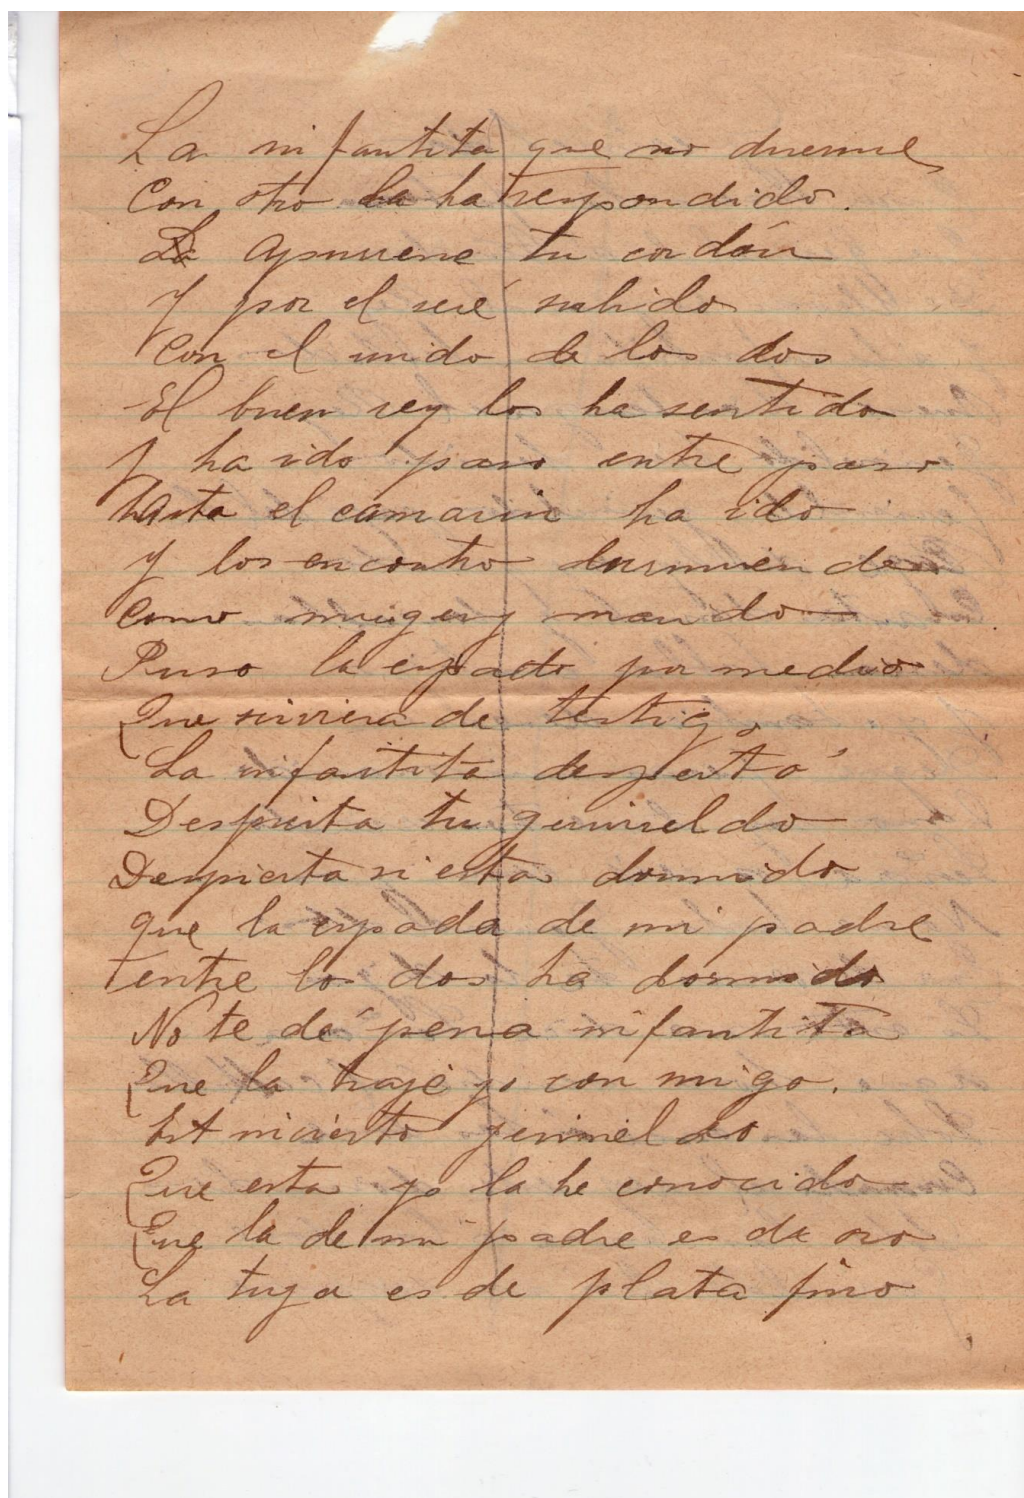 La infantita que no duerme
Con otro la ha respondido.
apsurene tu cordón
Y por el seré subido
Con el unido de los dos
El buen rey los ha sentido
Y ha ido paso entre paso
hasta el camarin ha ido
Y los encontro durmiendo
Como muger y marido
Puso la espada por medio
Que sirviera de testigo
La infantita despertó
Despierta tu geurineldo
Despierta si estas dormido
que la espada de mi padre
entre los dos ha dormido
No te dé pena infantita
Que la trajé yo con migo.
No es cierto gerineldo
Que esta yo la he conocido
Que la de mi padre es de oro
La tuya es de plata fino